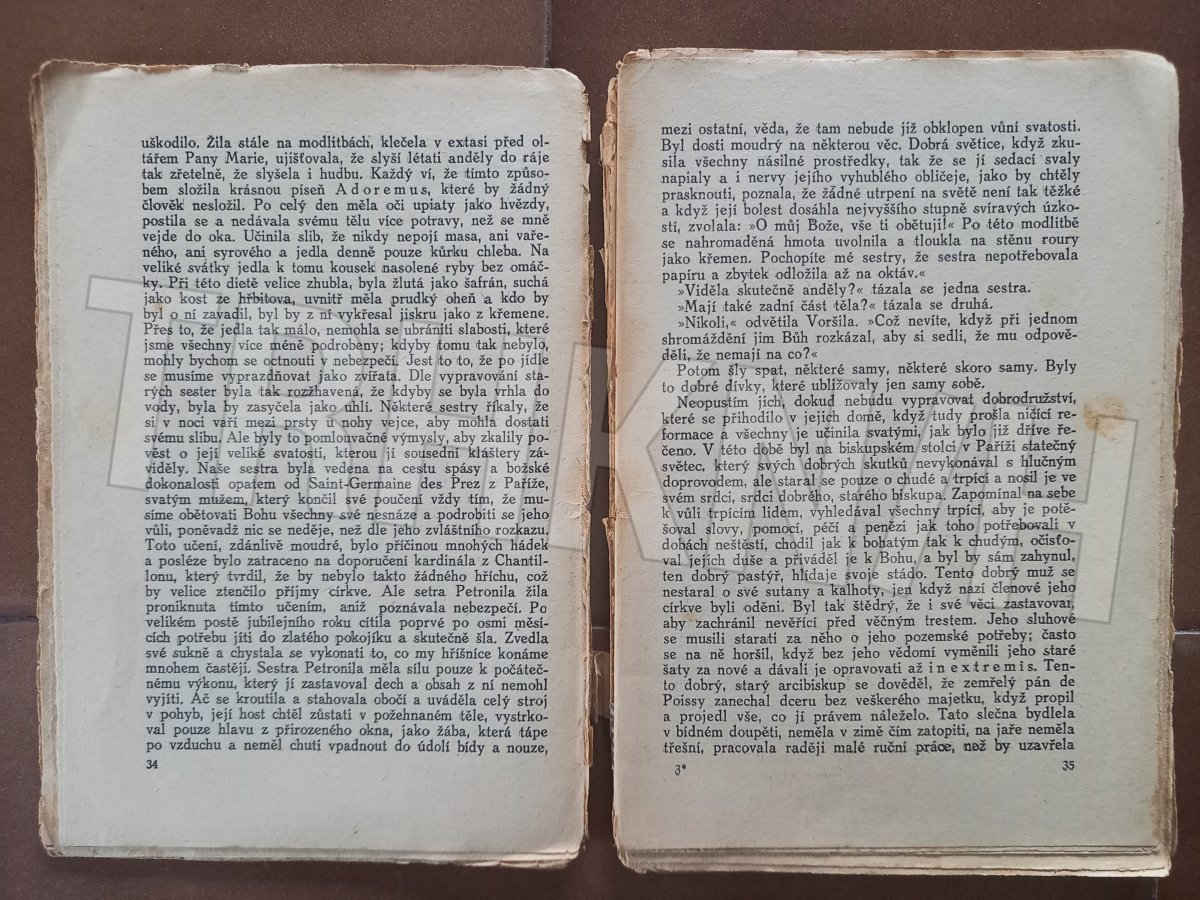 uškodilo. Žila stále na modlitbách, klečela v extasi před ol-
tářem Pany Marie, ujišťovala, že slyší létati anděly do ráje
tak zřetelně, že slyšela i hudbu. Každý ví, že tímto způso-
bem složila krásnou píseň Adoremus, které by žádný
člověk nesložil. Po celý den měla oči upiaty jako hvězdy,
postila se a nedávala svému tělu více potravy, než se mně
vejde do oka. Učinila slib, že nikdy nepojí masa, ani vaře-
ného, ani syrového a jedla denně pouze kůrku chleba. Na
veliké svátky jedla k tomu kousek nasolené ryby bez omáč-
ky. Při této dietě velice zhubla, byla žlutá jako šafrán, suchá
jako kost ze hřbitova, uvnitř měla prudký oheň a kdo by
byl o ní zavadil, byl by z ní vykřesal jiskru jako z křemene.
Přes to, že jedla tak málo, nemohla se ubrániti slabosti, které
jsme všechny více méně podrobeny; kdyby tomu tak nebylo,
mohly bychom se octnouti v nebezpečí. Jest to to, že po jídle
se musíme vyprazdňovat jako zvířata. Dle vypravování sta-
rých sester byla tak rozžhavená, že kdyby se byla vrhla do
vody, byla by zasyčela jako úhlí. Některé sestry říkaly, že
si v noci vaří mezi prsty u nohy vejce, aby mohla dostati
svému slibu. Ale byly to pomlouvačné výmysly, aby zkalily po-
věst o její veliké svatosti, kterou jí sousední kláštery zá-
viděly. Naše sestra byla vedena na cestu spásy a božské
dokonalosti opatem od Saint-Germaine des Prez z Paříže,
svatým mužem, který končil své poučení vždy tím, že mu-
síme obětovati Bohu všechny své nesnáze a podrobiti se jeho
vůli, poněvadž nic se neděje, než dle jeho zvláštního rozkazu.
Toto učení, zdánlivě moudré, bylo příčinou mnohých hádek
a posléze bylo zatraceno na doporučení kardinála z Chantil-
lonu, který tvrdil, že by nebylo takto žádného hříchu, což
by velice ztenčilo příjmy církve. Ale setra Petronila žila
proniknuta tímto učením, aniž poznávala nebezpečí. Po
velikém postě jubilejního roku cítila poprvé po osmi měsí-
cích potřebu jíti do zlatého pokojíku a skutečně šla. Zvedla
své sukně a chystala se vykonati to, co my hříšnice konáme
mnohem častějí. Sestra Petronila měla sílu pouze k počáteč-
nému výkonu, který jí zastavoval dech a obsah z ní nemohl
vyjíti. Ač se kroutila a stahovala obočí a uváděla celý stroj
v pohyb, její host chtěl zůstati v požehnaném těle, vystrko-
val pouze hlavu z přirozeného okna, jako žába, která tápe
po vzduchu a neměl chuti vpadnout do údolí bídy a nouze,
34
mezi ostatní, věda, že tam nebude již obklopen vůní svatosti.
Byl dosti moudrý na některou věc. Dobrá světice, když zku-
sila všechny násilné prostředky, tak že se jí sedací svaly
napialy a i nervy jejího vyhublého obličeje, jako by chtěly
prasknouti, poznala, že žádné utrpení na světě není tak těžké
a když její bolest dosáhla nejvyššího stupně svíravých úzko-
stí, zvolala: »O můj Bože, vše ti obětuji!« Po této modlitbě
se nahromaděná hmota uvolnila a tloukla na stěnu roury
jako křemen. Pochopíte mé sestry, že sestra nepotřebovala
papíru a zbytek odložila až na oktáv.«
»Viděla skutečně anděly?« tázala se jedna sestra.
»Mají také zadní část těla?« tázala se druhá.
»Nikoli,« odvětila Voršila. »Což nevíte, když při jednom
shromáždění jim Bůh rozkázal, aby si sedli, že mu odpově-
děli, že nemají na co?«
Potom šly spat, některé samy, některé skoro samy. Byly
to dobré dívky, které ubližovaly jen samy sobě.
Neopustím jich, dokud nebudu vypravovat dobrodružství,
které se přihodilo v jejich domě, když tudy prošla ničící re-
formace a všechny je učinila svatými, jak bylo již dříve ře-
čeno. V této době byl na biskupském stolci v Paříži statečný
světec, který svých dobrých skutků nevykonával s hlučným
doprovodem, ale staral se pouze o chudé a trpící a nosil je ve
svém srdci, srdci dobrého, starého biskupa. Zapomínal na sebe
k vůli trpícím lidem, vyhledával všechny trpící, aby je potě-
šoval slovy, pomocí, péčí a penězi jak toho potřebovali v
dobách neštěstí, chodil jak k bohatým tak k chudým, očisťo-
val jejich duše a přiváděl je k Bohu, a byl by sám zahynul,
ten dobrý pastýř, hlídaje svoje stádo. Tento dobrý muž se
nestaral o své sutany a kalhoty, jen když nazí členové jeho
církve byli oděni. Byl tak štědrý, že i své věci zastavovar,
aby zachránil nevěřící před věčným trestem. Jeho sluhové
se musili starati za něho o jeho pozemské potřeby; často
se na ně horšil, když bez jeho vědomí vyměnili jeho staré
šaty za nové a dávali je opravovati až in extremis. Ten-
to dobrý, starý arcibiskup se dověděl, že zemřelý pán de
Poissy zanechal dceru bez veškerého majetku, když propil
a projedl vše, co jí právem náleželo. Tato slečna bydlela
v bídném doupěti, neměla v zimě čím zatopiti, na jaře neměla
třešní, pracovala raději malé ruční práce, než by uzavřela
3*
35
TRHKNIH